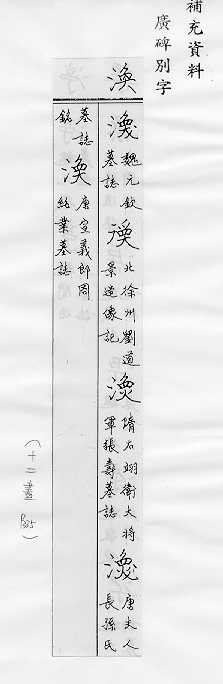 補充資料
廣碑別字
渙
渙 魏元欽墓誌 渙 北徐州劉道景造像記 渙 隋右翊衛大將軍張壽墓誌 渙 唐夫人長孫氏
墓誌銘 渙 唐宣義郎周紹業墓誌
(十二畫 )